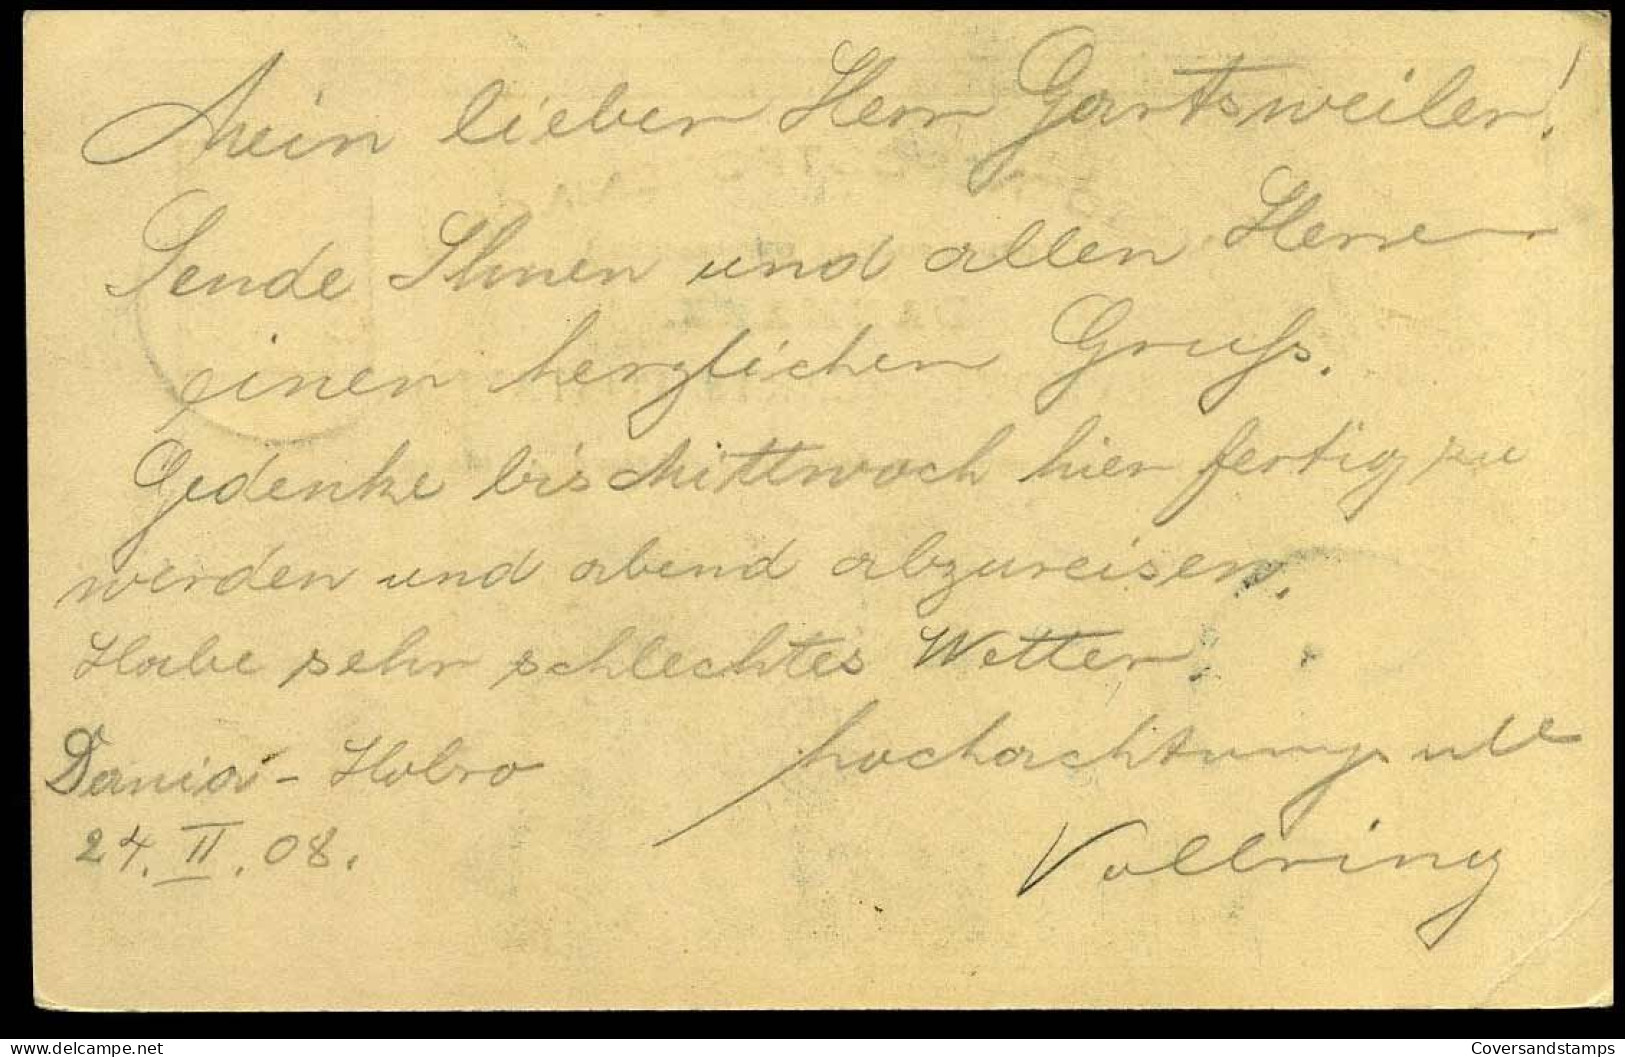 Mein lieber Herr Gartsweiler!
Sende Ihnen und allen Herren
einen herzlichen Gruß.
Gedenke bis Mittwoch hier fertig zu
werden und abend abzureisen.
Habe sehr schlechtes Wetter.
Dania - Hobro hochachtungsvoll
24. II. 08. Vollring
delcampe.net
Coversandstamps